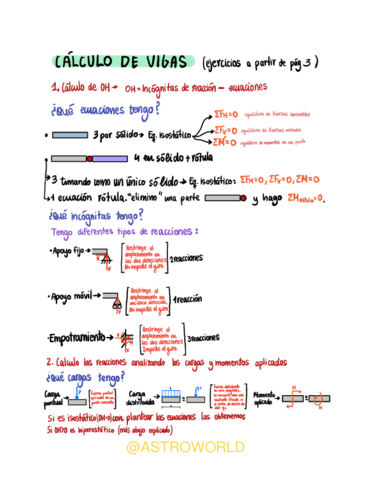 CÁLCULO DE VIGAS (ejercicios a partir de pág 3)
1. Cálculo de OH → OH = Incógnitas de reacción – ecuaciones
¿Qué ecuaciones tengo?
3 por sólido → Eq. isostático
ΣFH=0 equilibrio de fuerzas horizontales
ΣFV=0 equilibrio de fuerzas verticales
ΣM=0 equilibrio de momentos en un punto
4 en sólido + rótula
3 tomando como un único sólido → Eq. isostático: ΣFH=0, ΣFV=0, ΣM=0
1 ecuación rótula. "elimino" una parte y hago ΣMrótula=0.
¿Qué incógnitas tengo?
Tengo diferentes tipos de reacciones:
· Apoyo fijo → Restringe el desplazamiento en las dos direcciones No impide el giro. 2 reacciones
· Apoyo móvil → Restringe el desplazamiento en una dirección. No impide el giro. 1 reacción
· Empotramiento → Restringe el desplazamiento en las dos direcciones Impide el giro. 3 reacciones
2. Calculo las reacciones analizando las cargas y momentos aplicados
¿Qué cargas tengo?
Carga puntual
Carga distribuida
Momento aplicado
Si es isostático (OH=0) con plantear las ecuaciones las obtenemos
Si OH>0 es hiperestático (más abajo explicado)
@ASTROWORLD